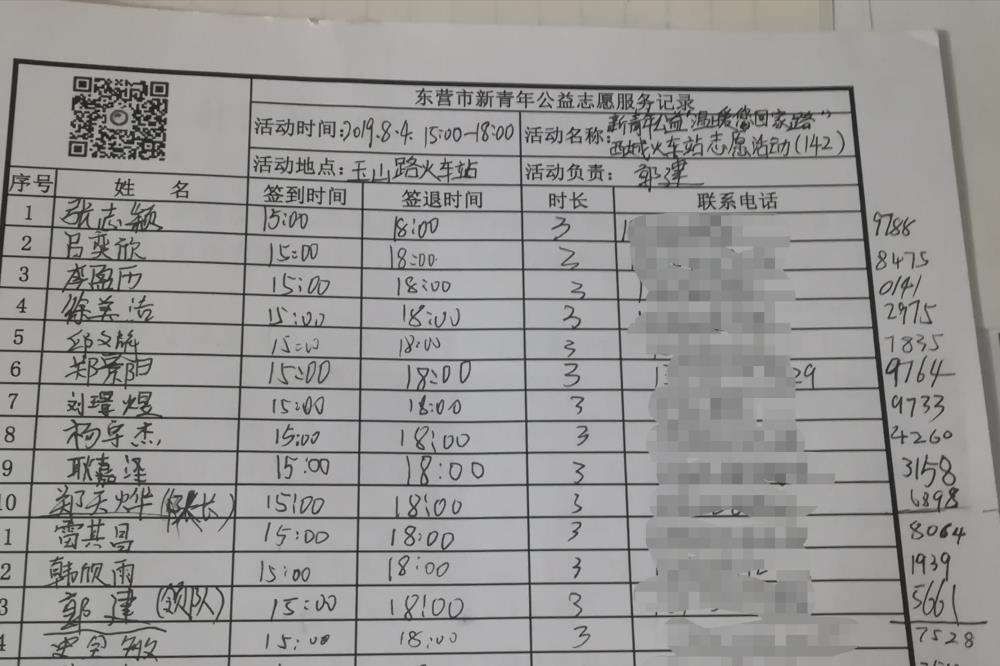 东营市新青年公益志愿服务记录
活动时间:2019.8.4. 15:00-18:00 活动名称:新青年公益"温暖您回家路"
西城火车站志愿活动(142)
活动地点:玉山路火车站 活动负责:郭建
序号 姓 名 签到时间 签退时间 时长 联系电话
1 张志颖 15:00 18:00 3 9788
2 吕奕欣 15:00 18:00 3 8475
3 李盈历 15:00 18:00 3 0141
4 徐美洁 15:00 18:00 3 2975
5 邱文 15:00 18:00 3 7835
6 郑景阳 15:00 18:00 3 29 9764
7 刘璟煜 15:00 18:00 3 9733
8 杨宇杰 15:00 18:00 3 4260
9 耿嘉泽 15:00 18:00 3 3158
10 郑天烨(队长) 15:00 18:00 3 6898
1 雷其昌 15:00 18:00 3 8064
2 韩欣雨 15:00 18:00 3 1939
3 郭建(领队) 15:00 18:00 3 5661
4 史 敏 15:00 18:00 3 7528